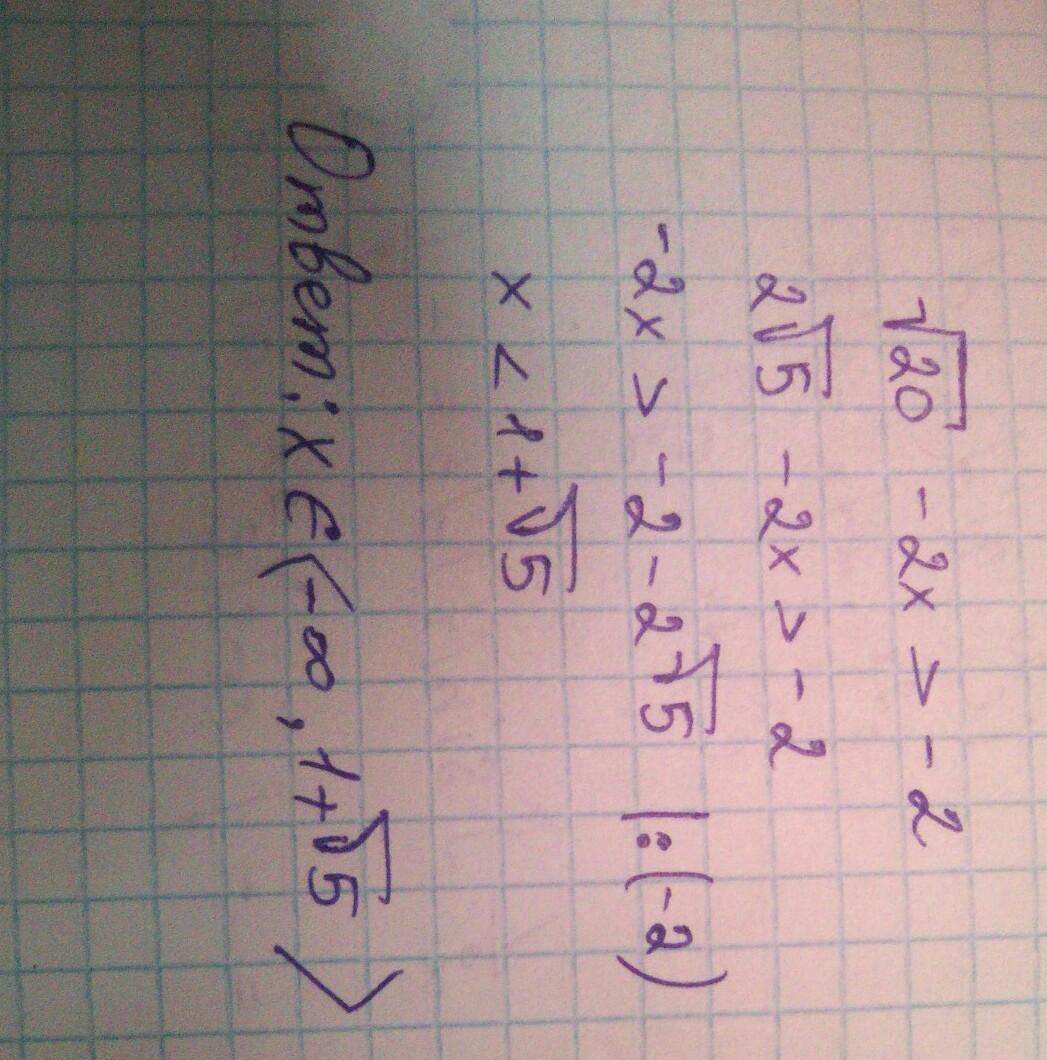 √20 -2x > -2
2√5 -2x > -2
-2x > -2 - 2√5 |:(-2)
x < 1+√5
Ответ: x ∈ ⟨-∞, 1+√5⟩